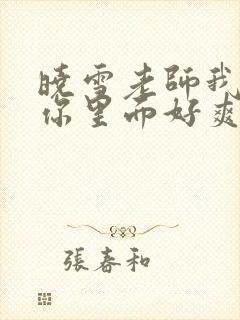 曉雪老師我
你里面好爽
張春和